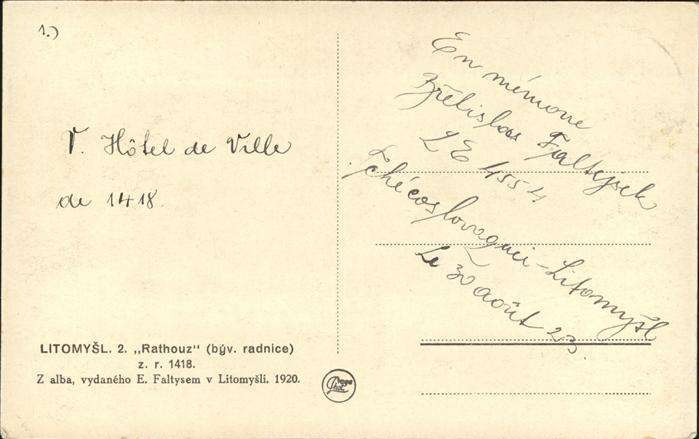 1.)
V. Hôtel de Ville
de 1418.
En mémoire
Břetislav Faltysek
LE 4554
Tchécoslovaquei - Litomyšl
Le 30 août 23.
LITOMYŠL. 2. „Rathouz" (býv. radnice)
z. r. 1418.
Z alba, vydaného E. Faltysem v Litomyšli. 1920.